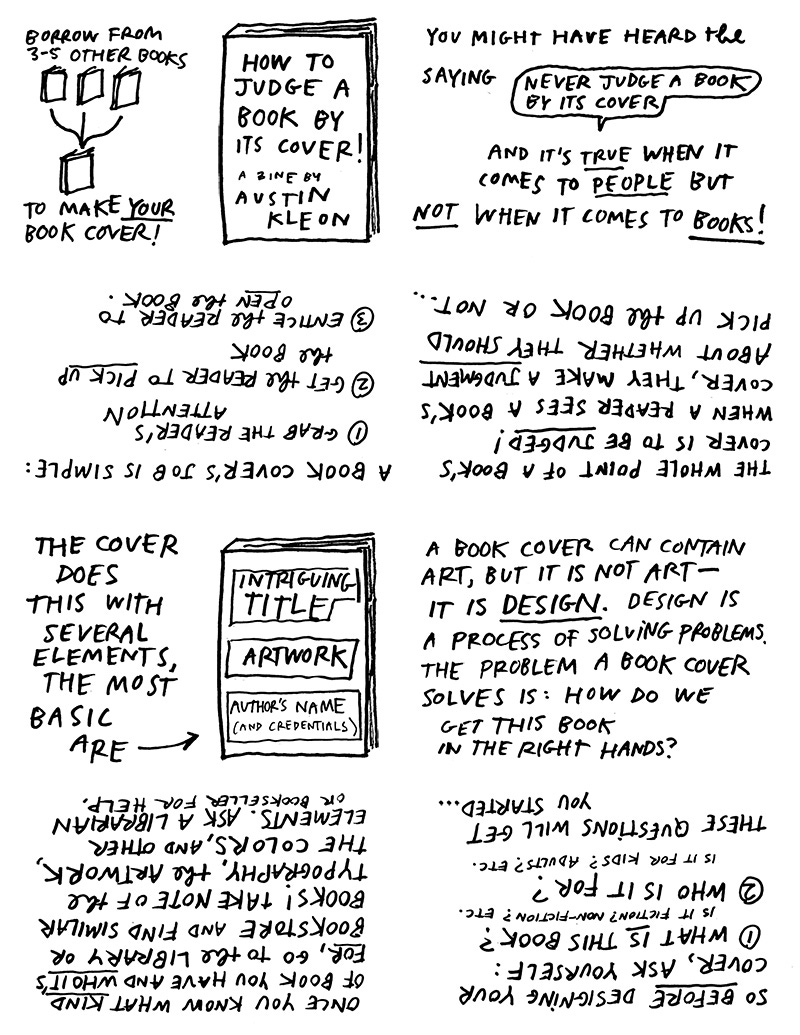 BORROW FROM
3-5 OTHER BOOKS
TO MAKE YOUR
BOOK COVER!
HOW TO
JUDGE A
BOOK BY
ITS COVER!
A ZINE BY
AUSTIN
KLEON
YOU MIGHT HAVE HEARD the
SAYING
NEVER JUDGE A BOOK
BY ITS COVER
AND IT'S TRUE WHEN IT
COMES TO PEOPLE BUT
NOT WHEN IT COMES TO BOOKS!
THE WHOLE POINT OF A BOOK'S
COVER IS TO BE JUDGED!
WHEN A READER SEES A BOOK'S
COVER, THEY MAKE A JUDGMENT
ABOUT WHETHER THEY SHOULD
PICK UP the BOOK OR NOT...
A BOOK COVER'S JOB IS SIMPLE:
① GRAB THE READER'S
ATTENTION
② GET the READER TO PICK UP
the BOOK
③ ENTICE the READER TO
OPEN the BOOK.
THE COVER
DOES
THIS WITH
SEVERAL
ELEMENTS,
THE MOST
BASIC
ARE
INTRIGUING
TITLE
ARTWORK
AUTHOR'S NAME
(AND CREDENTIALS)
A BOOK COVER CAN CONTAIN
ART, BUT IT IS NOT ART—
IT IS DESIGN. DESIGN IS
A PROCESS OF SOLVING PROBLEMS.
THE PROBLEM A BOOK COVER
SOLVES IS: HOW DO WE
GET THIS BOOK
IN THE RIGHT HANDS?
SO BEFORE DESIGNING YOUR
COVER, ASK YOURSELF:
① WHAT IS THIS BOOK?
IS IT FICTION? NON-FICTION? ETC.
② WHO IS IT FOR?
IS IT FOR KIDS? ADULTS? ETC.
THESE QUESTIONS WILL GET
YOU STARTED...
ONCE YOU KNOW WHAT KIND
OF BOOK YOU HAVE AND WHO IT'S
FOR, GO TO the LIBRARY OR
BOOKSTORE AND FIND SIMILAR
BOOKS! TAKE NOTE OF the
TYPOGRAPHY, the ARTWORK,
THE COLORS, AND OTHER
ELEMENTS. ASK A LIBRARIAN
OR BOOKSELLER FOR HELP.